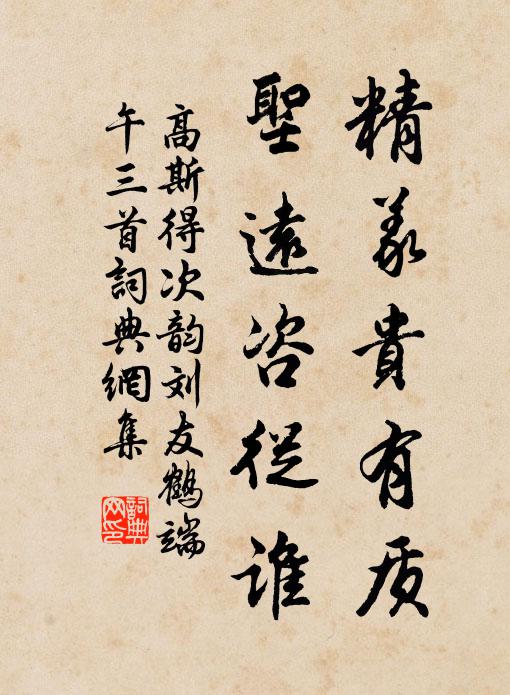 精義貴有质
聖遠咨從誰
高斯得次韵刘友鶴端
午三首詞典網集
詞典
网印